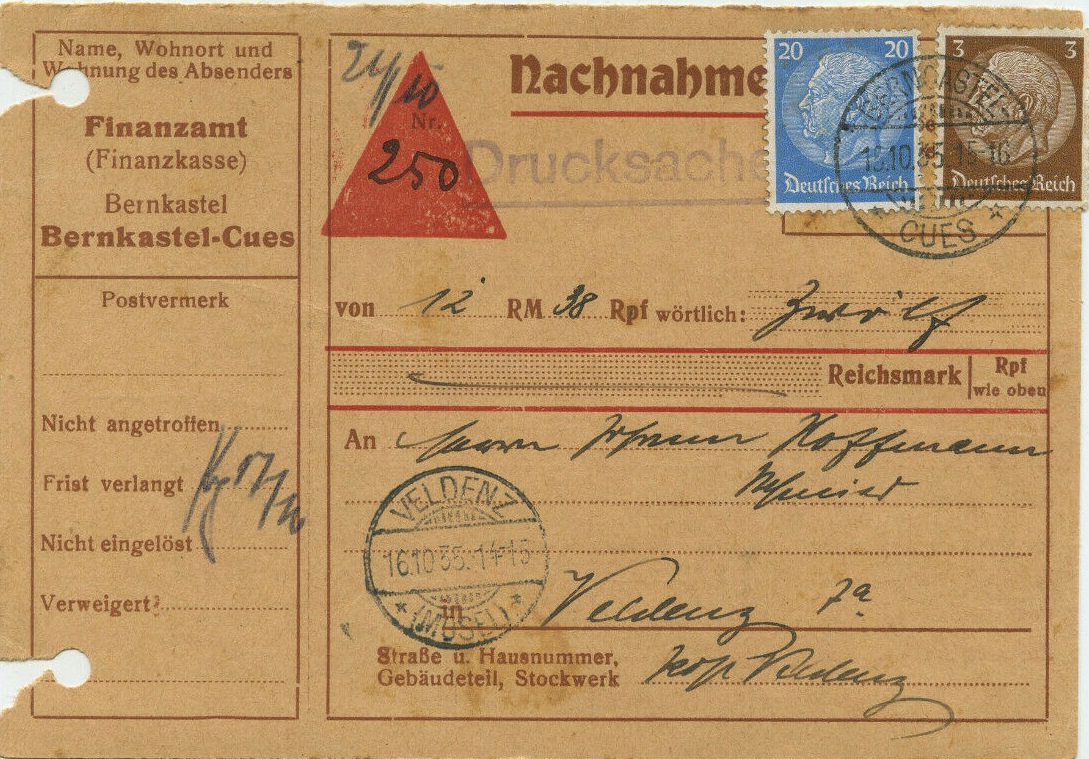 Name, Wohnort und
Wohnung des Absenders
Finanzamt
(Finanzkasse)
Bernkastel
Bernkastel-Cues
Postvermerk
Nicht angetroffen
Frist verlangt
Nicht eingelöst
Verweigert
Nachnahme
Nr.
250
Drucksache
20 20
Deutsches Reich
3 3
Deutsches Reich
BERNCASTEL-
15-16
CUES
von 12 RM 38 Rpf wörtlich: Zwölf
Reichsmark Rpf
wie oben
An Herrn Johann Hoffmann
Schmied
VELDENZ
16.10.35. 14-15
(MOSEL)
in Veldenz 7a
Straße u. Hausnummer,
Gebäudeteil, Stockwerk
Veldenz